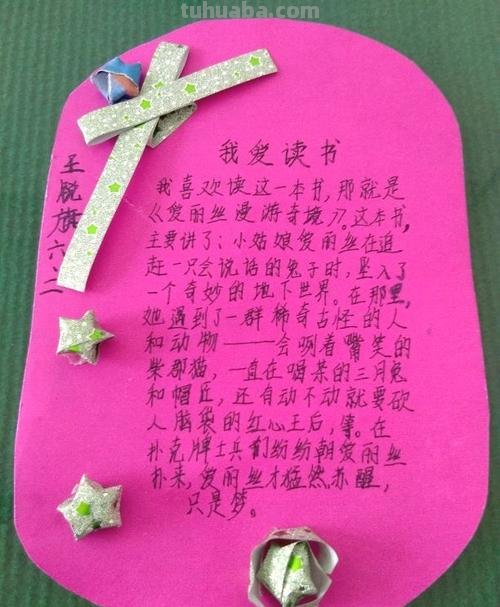 tuhuaba.com
我爱读书
王
六.二
我喜欢读这一本书,那就是
《爱丽丝漫游奇境》。这本书,
主要讲了:小姑娘爱丽丝在追
赶一只会说话的兔子时,坠入了
一个奇妙的地下世界。在那里,
她遇到了一群稀奇古怪的人
和动物——会咧着嘴笑的
柴郡猫,一直在喝茶的三月兔
和帽匠,还有动不动就要砍
人脑袋的红心王后,等。在
扑克牌士兵们纷纷朝爱丽丝
扑来,爱丽丝才猛然苏醒,
只是梦。